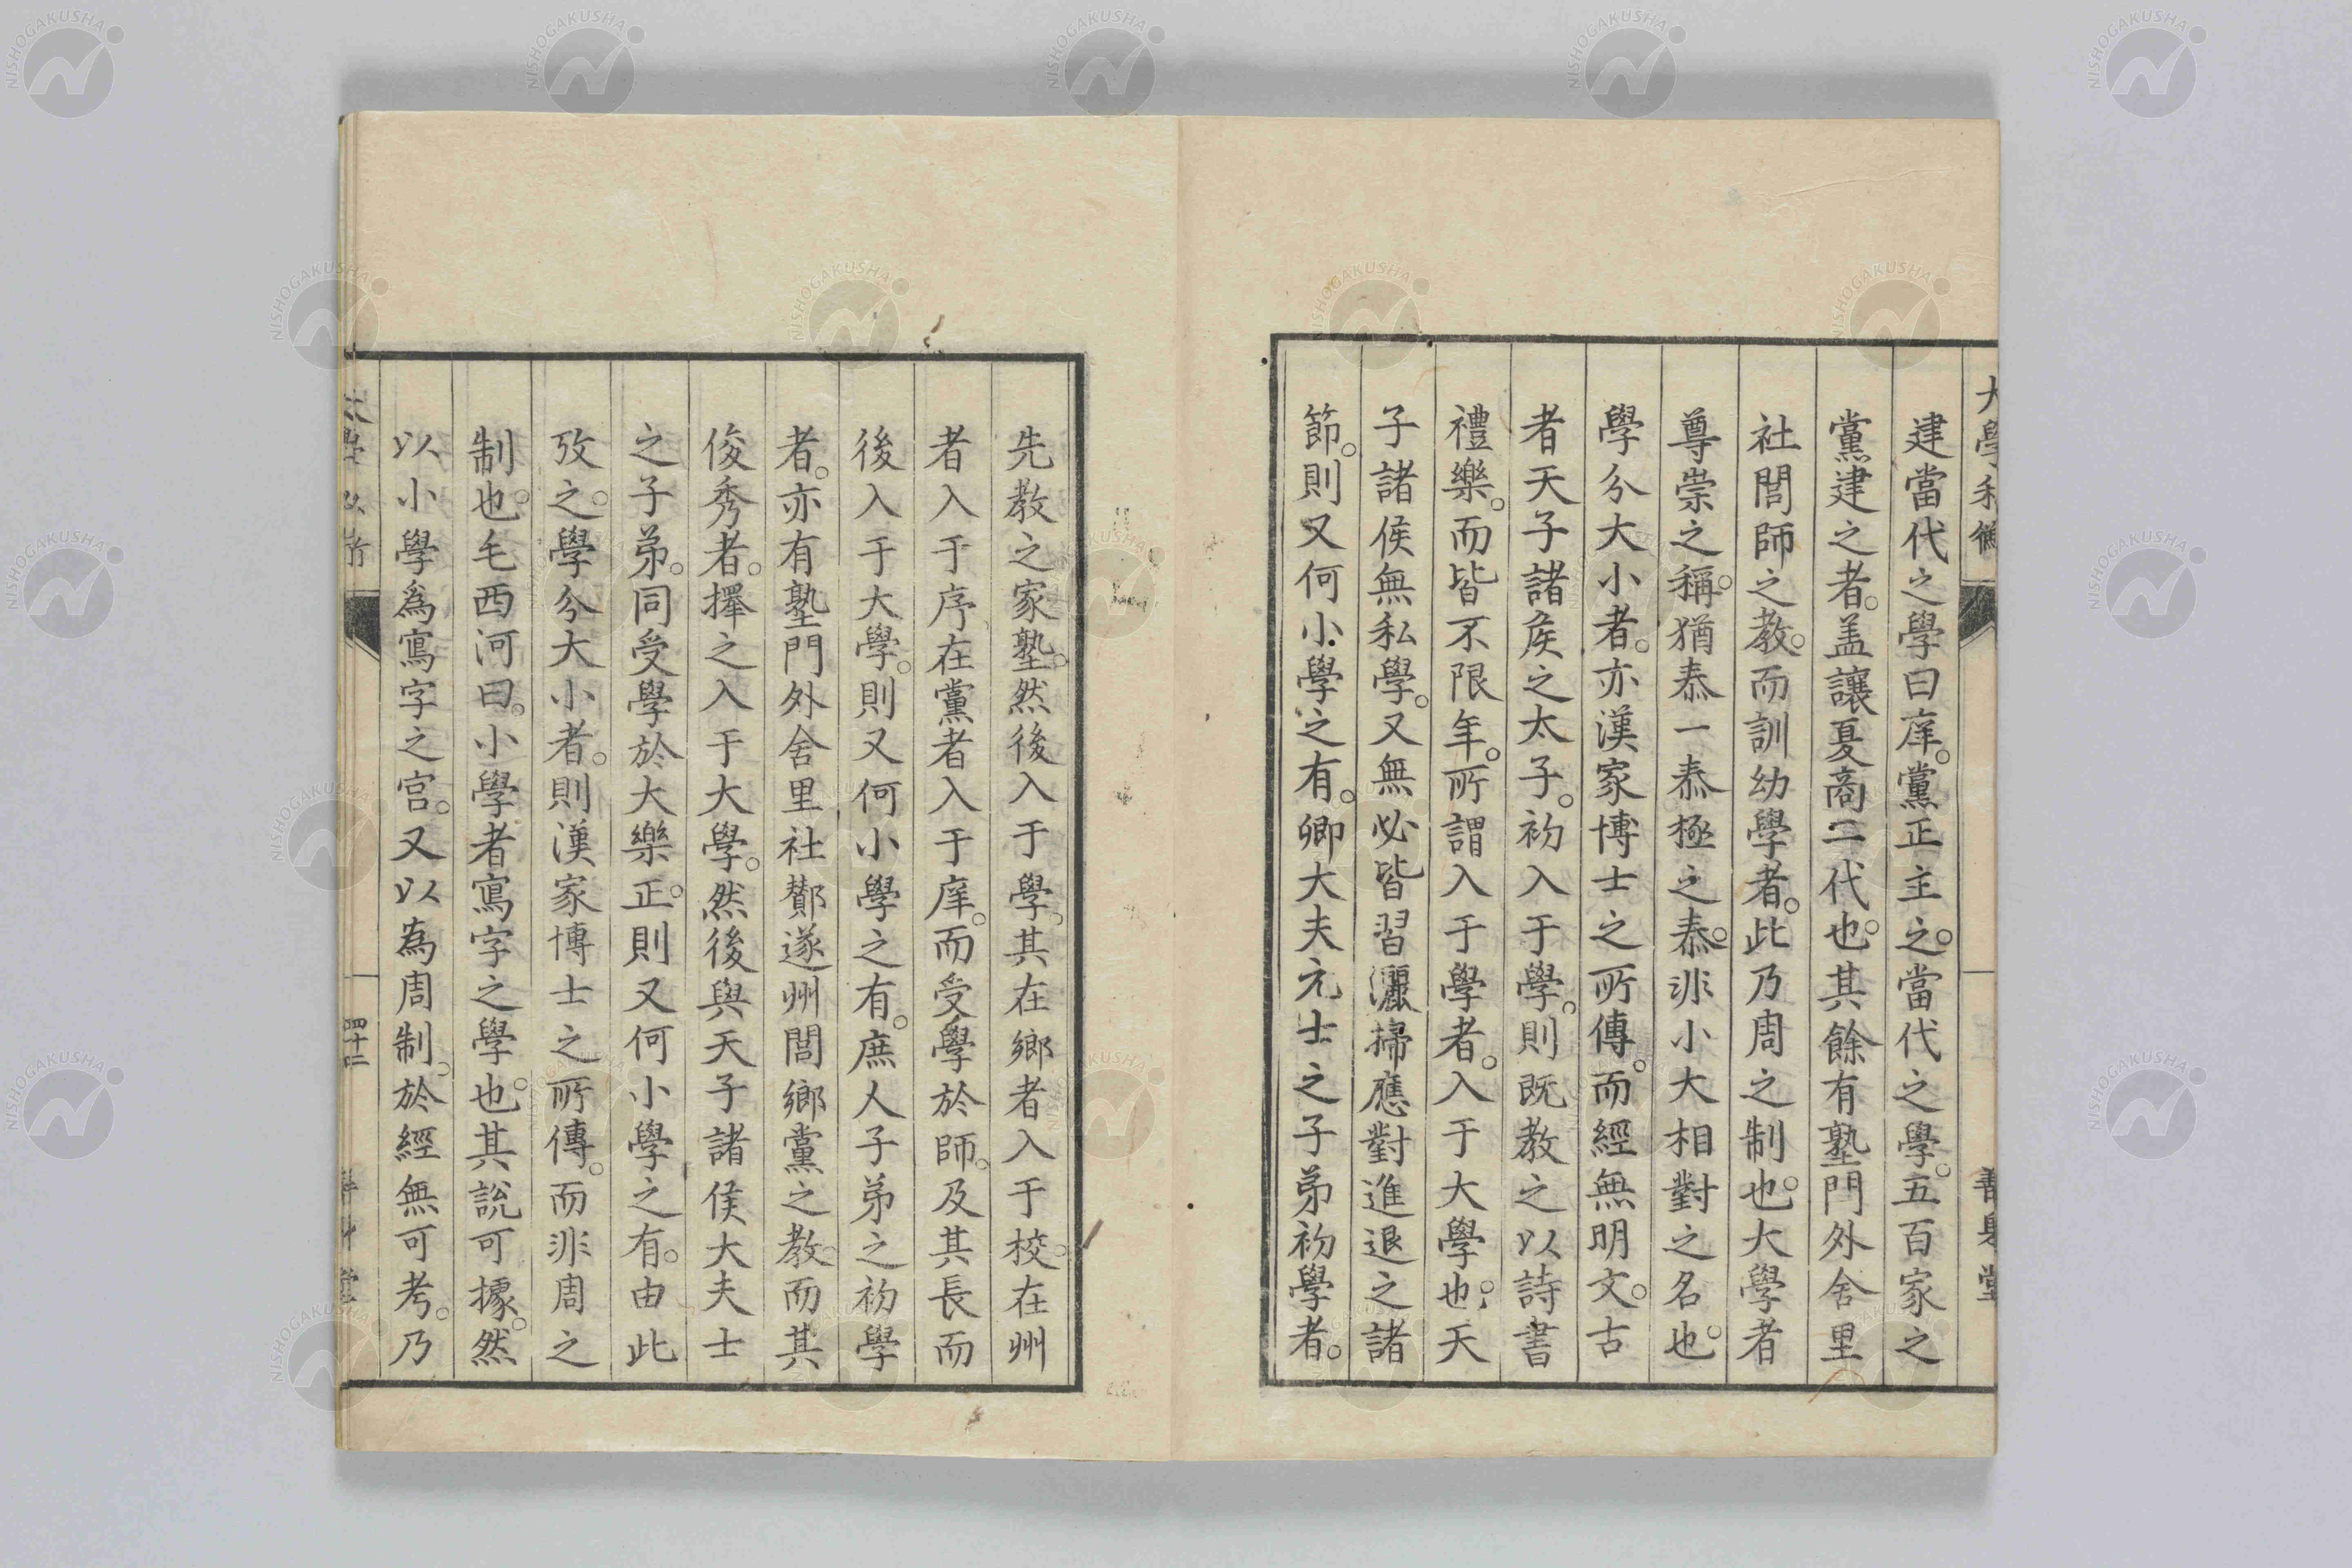 建當代之學曰庠。黨正主之。當代之學。五百家之
黨建之者。盖讓夏商二代也。其餘有塾門外舍里
社閭師之教。而訓幼學者。此乃周之制也。大學者
尊崇之稱。猶泰一泰極之泰。非小大相對之名也。
學分大小者。亦漢家博士之所傳。而經無明文。古
者天子諸侯之太子。初入于學。則既教之以詩書
禮樂。而皆不限年。所謂入于學者。入于大學也。天
子諸侯無私學。又無必皆習灑掃應對進退之諸
節。則又何小學之有。卿大夫元士之子弟初學者。
先教之家塾。然後入于學。其在鄉者入于校。在州
者入于序。在黨者入于庠。而受學於師。及其長而
後入于大學。則又何小學之有。庶人子弟之初學
者。亦有塾門外舍里社酇遂州閭鄉黨之教。而其
俊秀者。擇之入于大學。然後與天子諸侯大夫士
之子弟。同受學於大樂正。則又何小學之有。由此
攷之。學分大小者。則漢家博士之所傳。而非周之
制也。毛西河曰。小學者寫字之學也。其說可據。然
以小學爲寫字之宮。又以為周制。於經無可考。乃
四十二